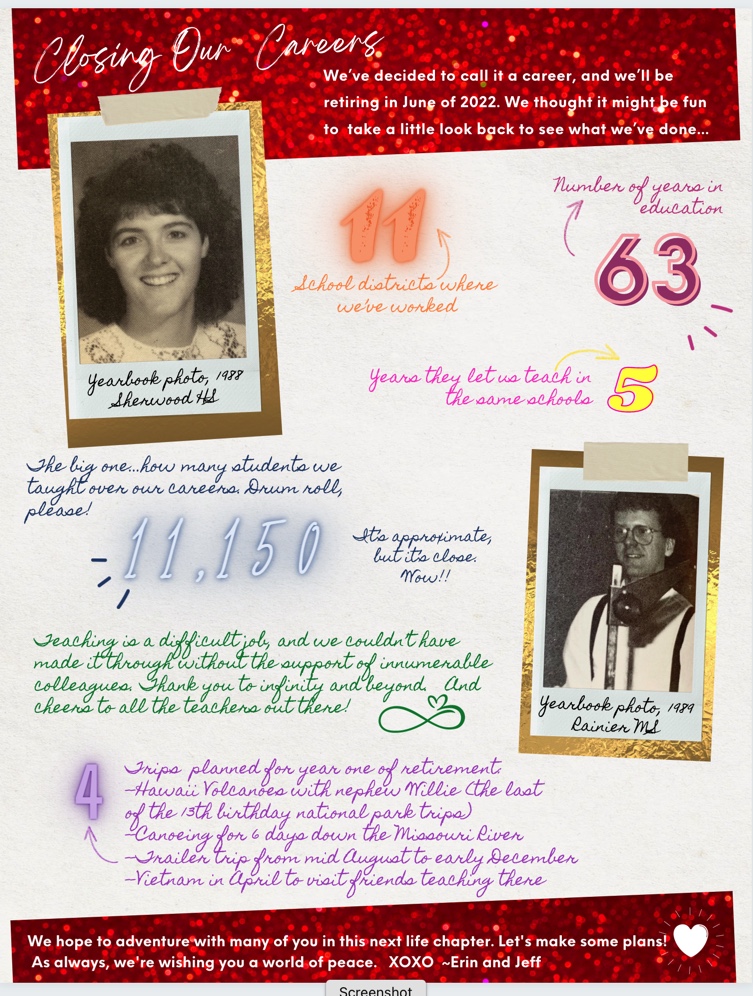 Closing Our Careers
We've decided to call it a career, and we'll be
retiring in June of 2022. We thought it might be fun
to take a little look back to see what we've done...
11
School districts where
we've worked
Number of years in
education
63
Yearbook photo, 1988
Sherwood HS
Years they let us teach in
the same schools
5
The big one...how many students we
taught over our careers. Drum roll,
please!
11,150
It's approximate,
but it's close.
Wow!!
Yearbook photo, 1989
Rainier MS
Teaching is a difficult job, and we couldn't have
made it through without the support of innumerable
colleagues. Thank you to infinity and beyond. And
cheers to all the teachers out there!
4
Trips planned for year one of retirement:
-Hawaii Volcanoes with nephew Willie (the last
of the 13th birthday national park trips)
-Canoeing for 6 days down the Missouri River
-Trailer trip from mid August to early December
-Vietnam in April to visit friends teaching there
We hope to adventure with many of you in this next life chapter. Let's make some plans!
As always, we're wishing you a world of peace. XOXO ~Erin and Jeff
Screenshot